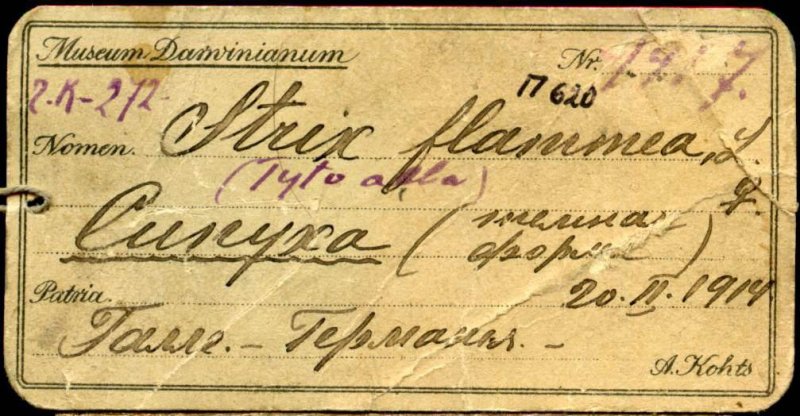 Museum Darwinianum Nr.
2.K-212 П 620
Nomen. Strix flammea, L.
(Tyto alba) ♀.
Сипуха (темная
форма)
Patria. 20.II.1914
Галле. - Германия. -
A. Kohts